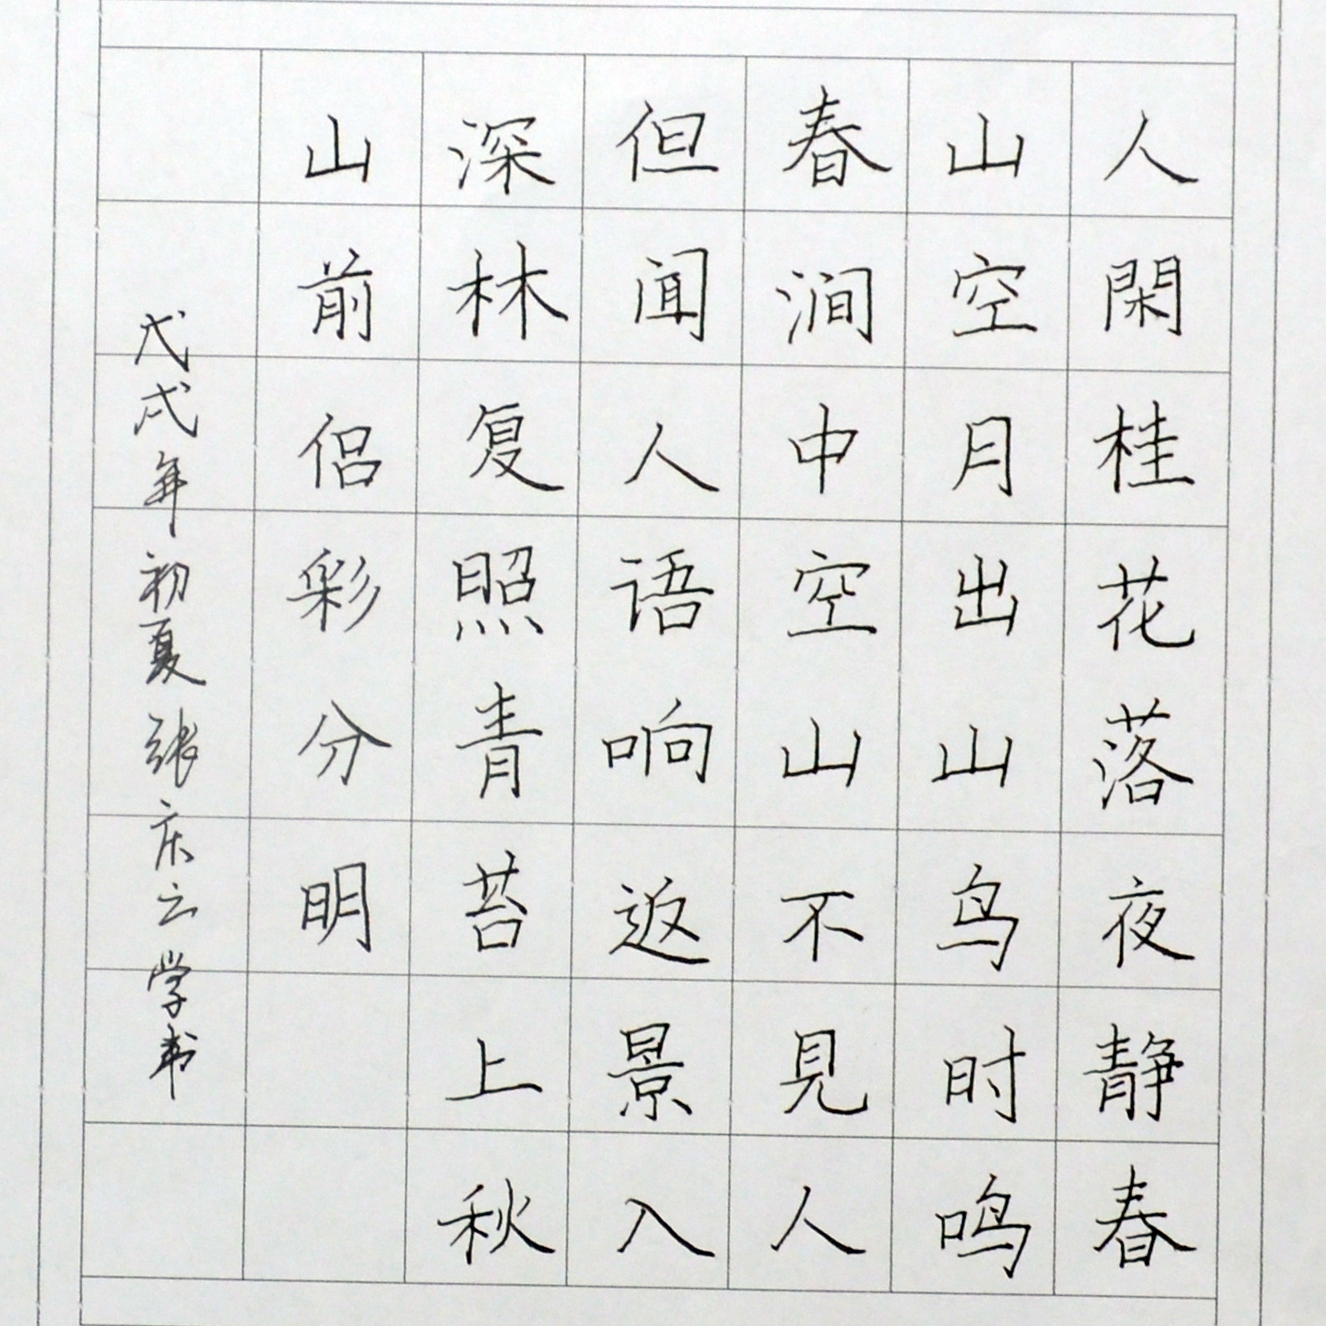 人閑桂花落夜静春
山空月出山鸟时鸣
春涧中空山不見人
但闻人语响返景入
深林复照青苔上秋
山前侣彩分明
戊戌年初夏张庆云学书